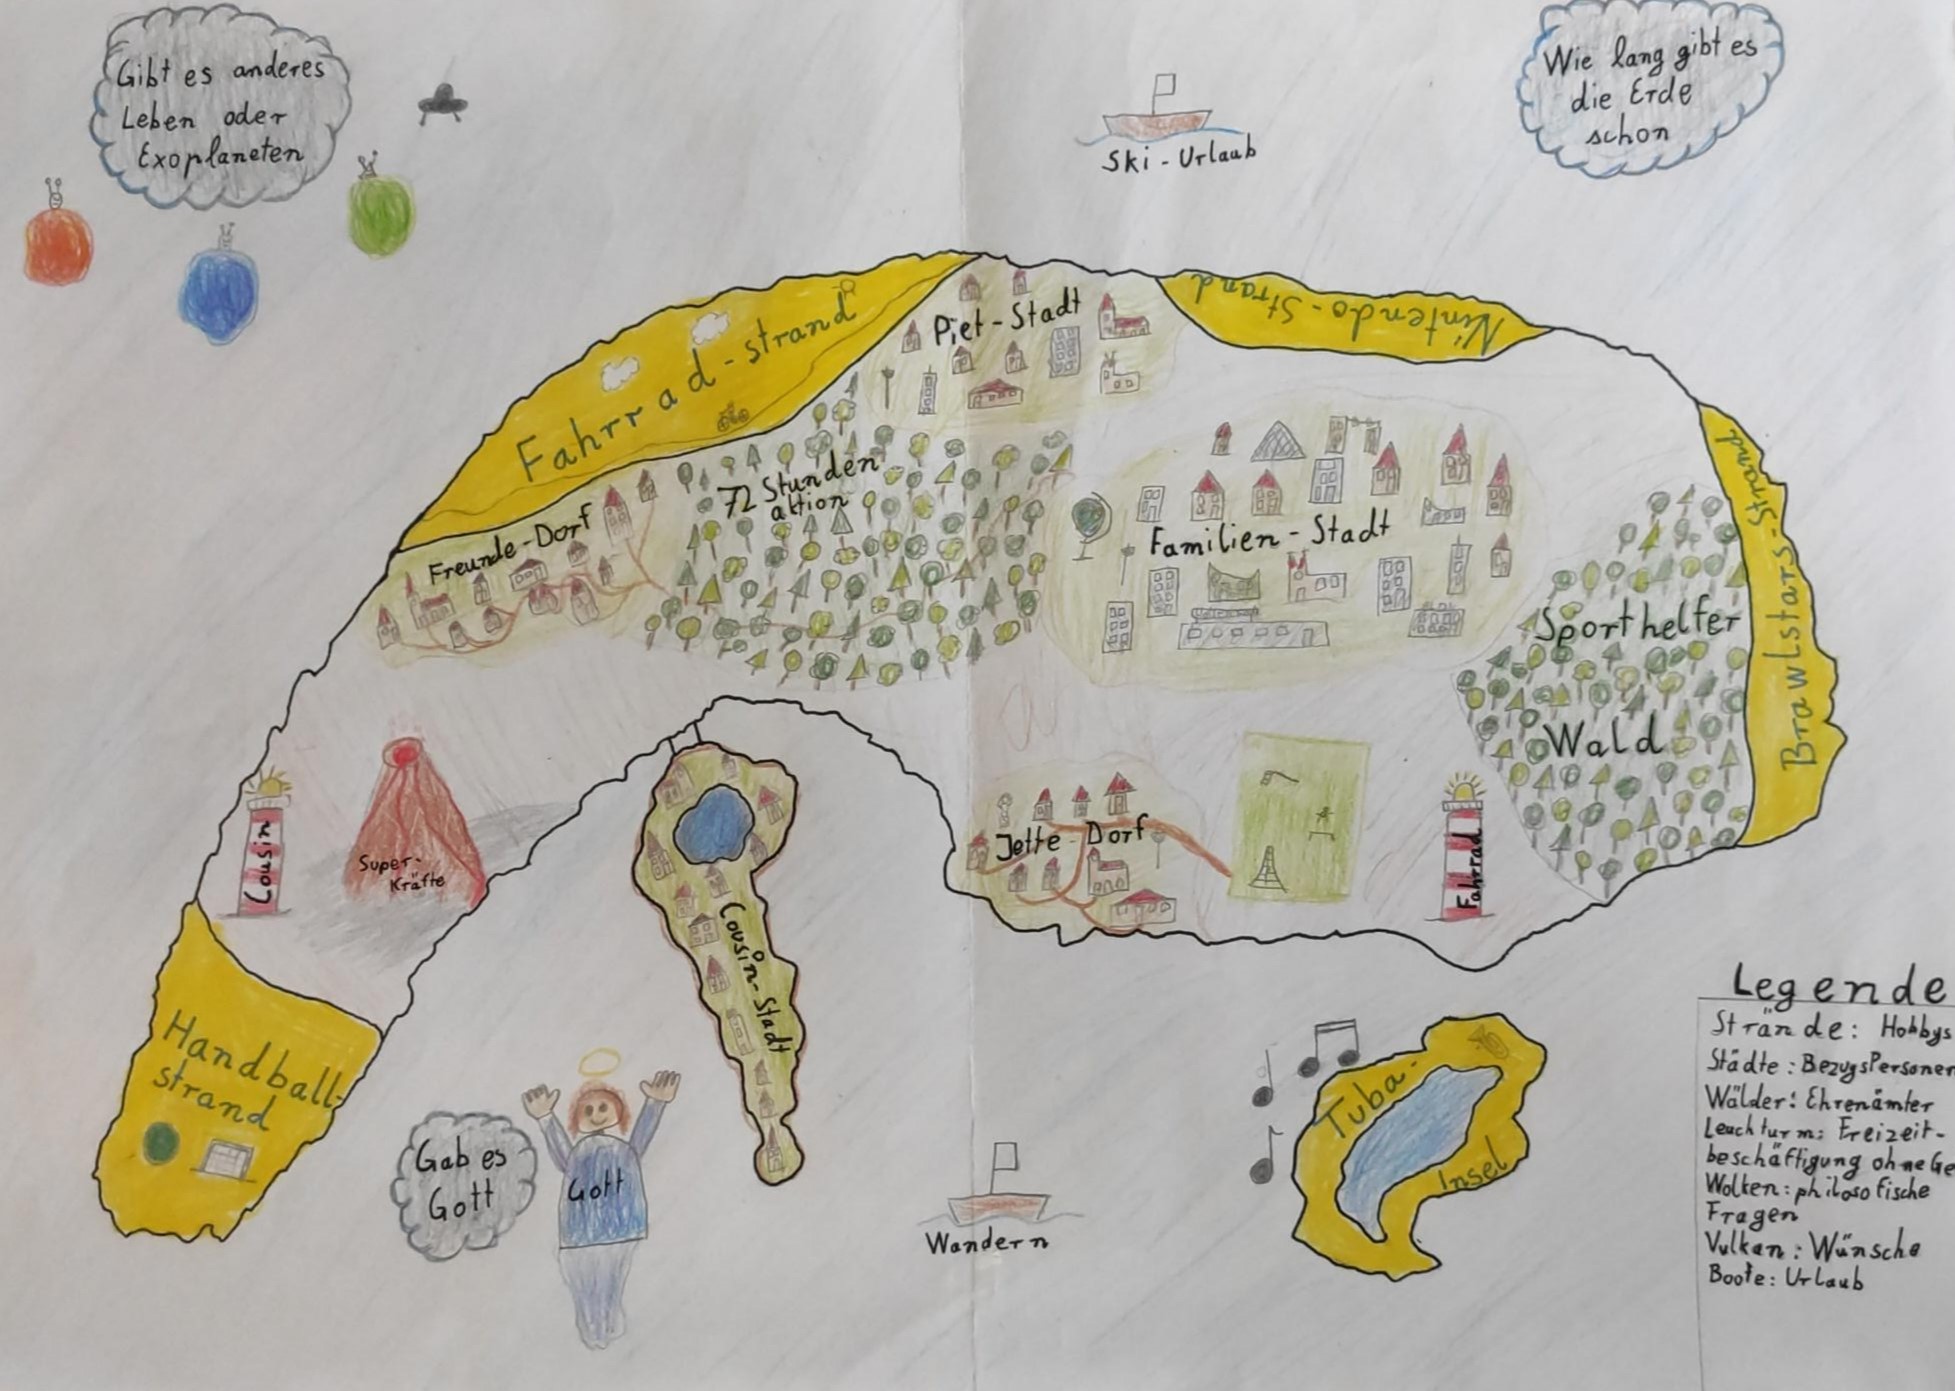 Gibt es anderes
Leben oder
Exoplaneten
Ski-Urlaub
Wie lang gibt es
die Erde
schon
Fahrrad-strand
Piet-Stadt
Nintendo-Strand
72 Stunden
aktion
Freunde-Dorf
Familien-Stadt
Brawlstars-Strand
Sporthelfer
Wald
Cousin
Super-
Kräfte
Jette-Dorf
Fahrrad
Cousin-Stadt
Handball-
strand
Gab es
Gott
Gott
Wandern
Tuba-
Insel
Legende
Strände: Hobbys
Städte: BezugsPersonen
Wälder: Ehrenämter
Leuchturm: Freizeit-
beschäftigung ohne Ge
Wolken: philosofische
Fragen
Vulkan: Wünsche
Boote: Urlaub